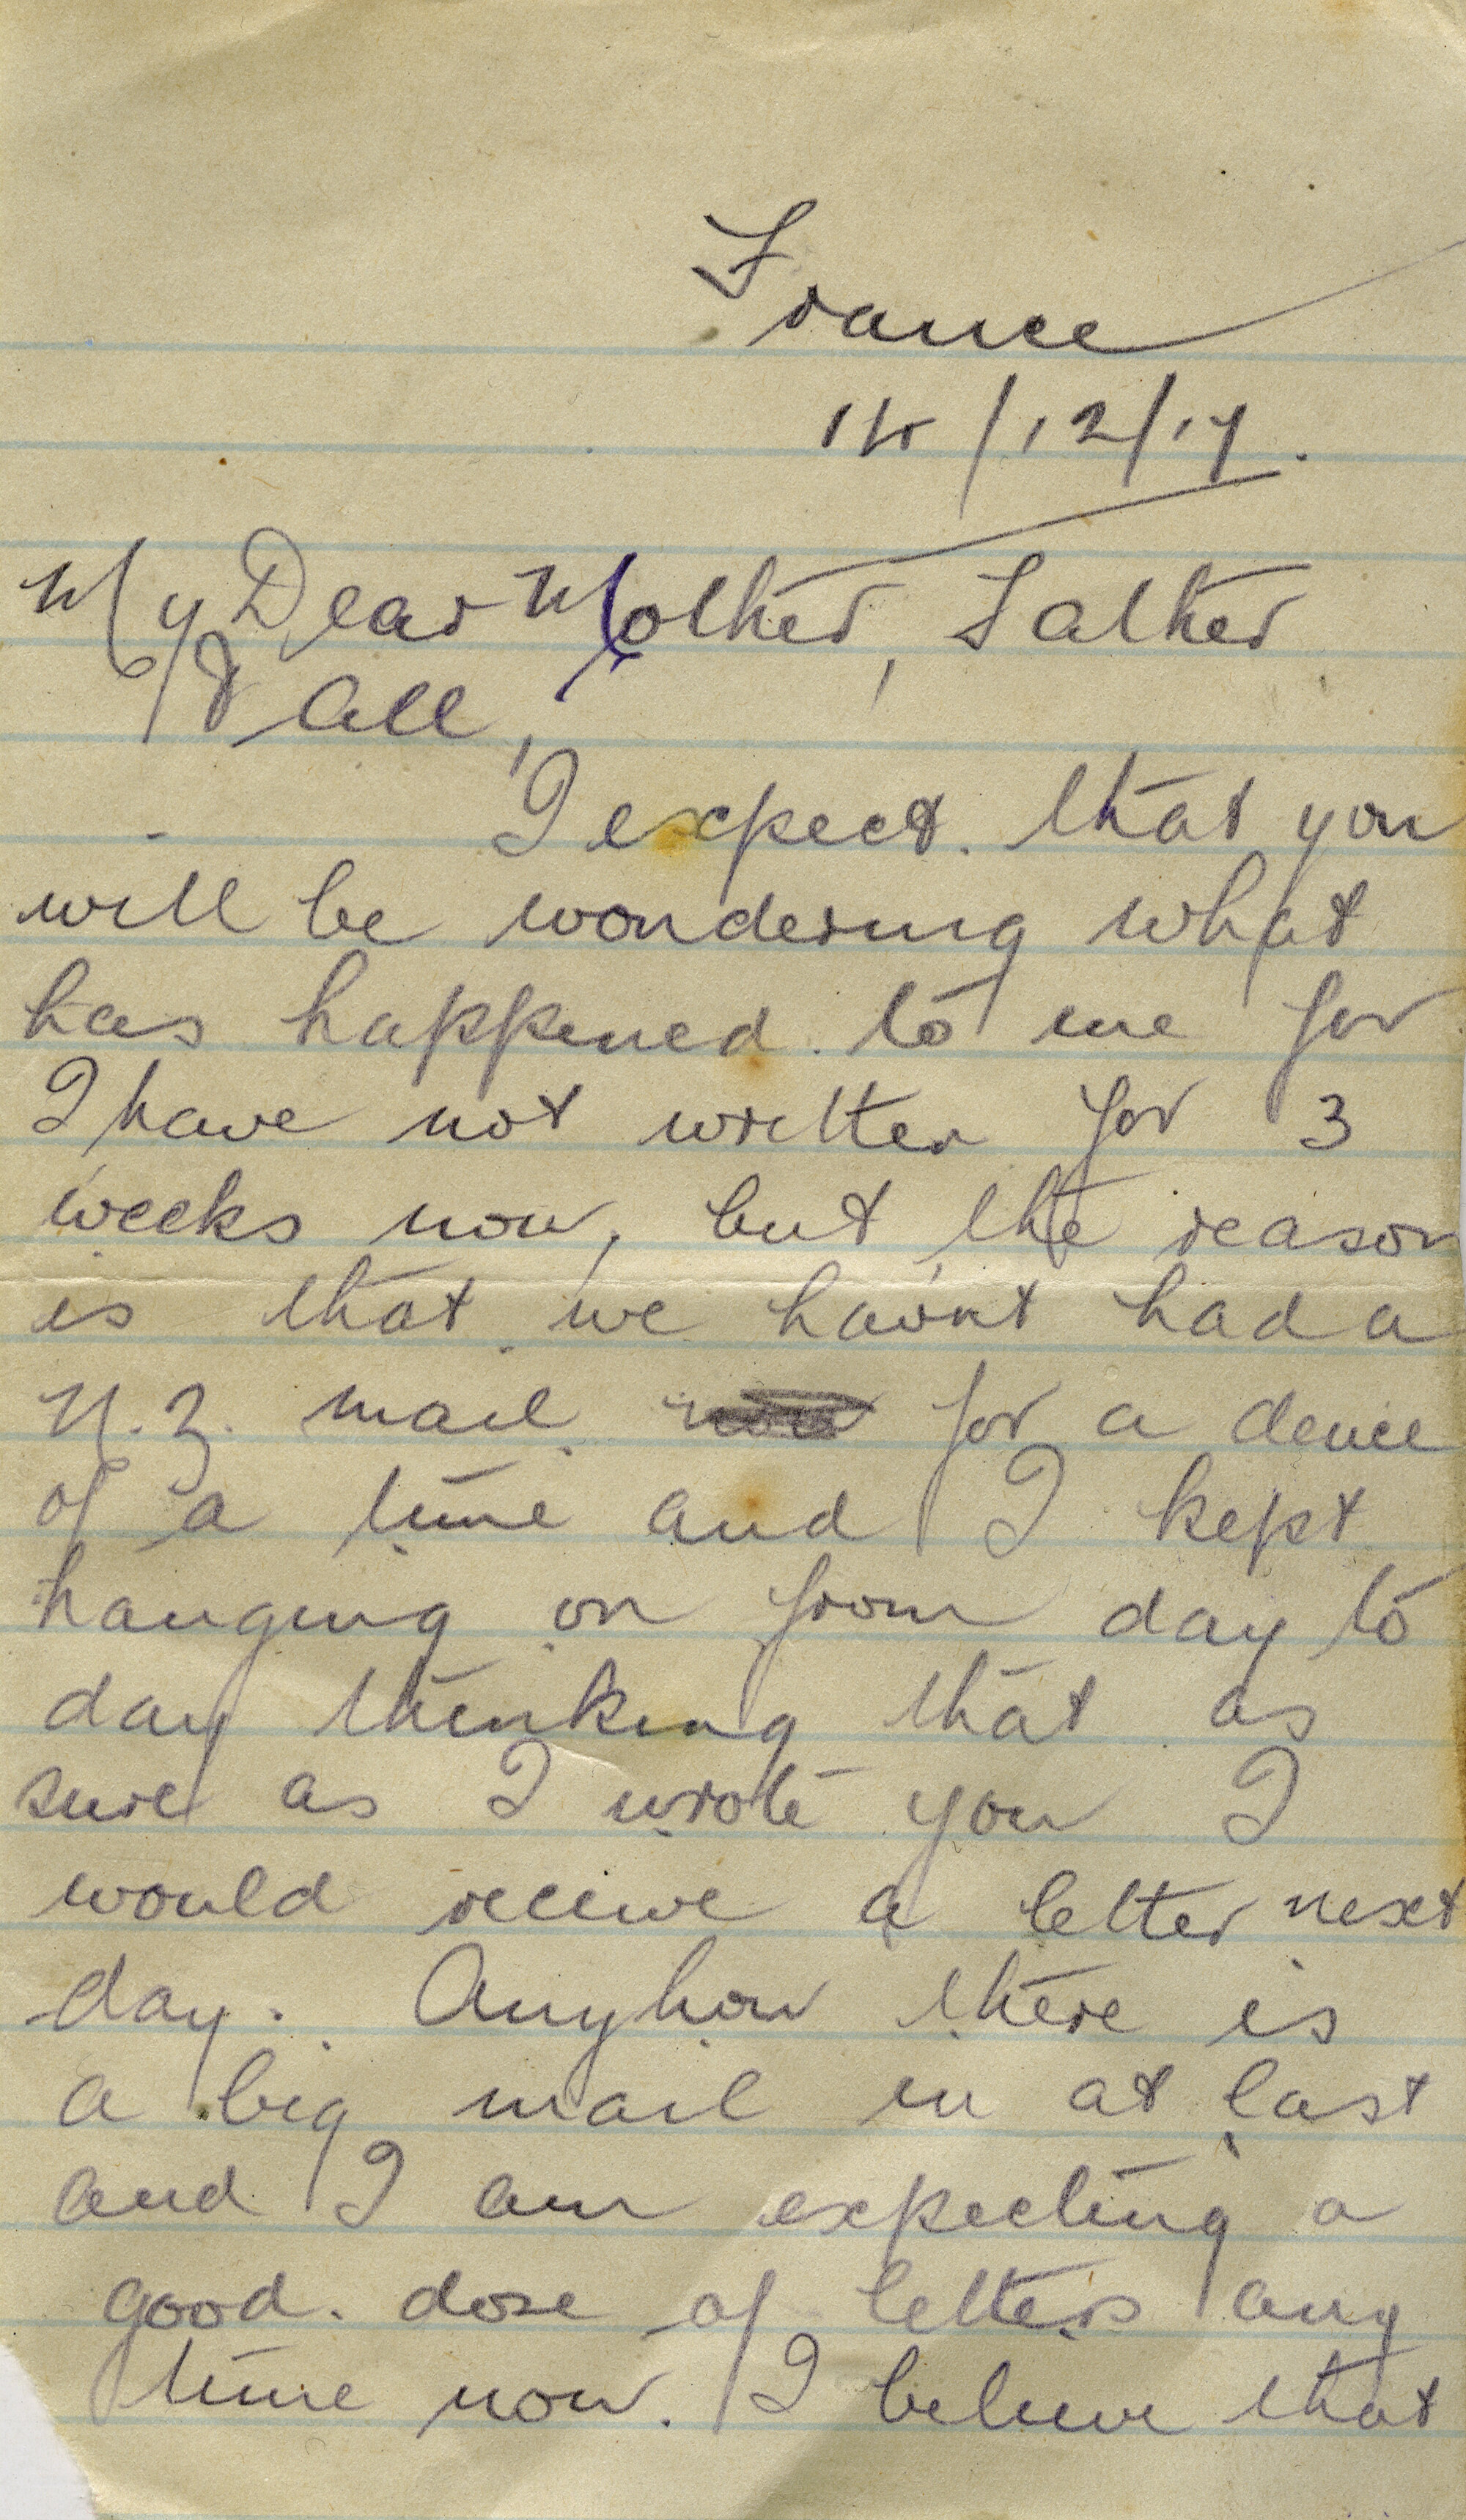 France
14/12/17.
My Dear Mother, Father
& All,
I expect. that you
will be wondering what
has happened. to me for
I have not written for 3
weeks now, but the reason
is that we hav'nt had a
N.Z. mail for a deuce
of a time and I kept
hanging on from day to
day thinking that as
sure as I wrote you I
would receive a letter next
day. Anyhow there is
a big mail in at last
and I am expecting a
good. dose of letters any
time now. I believe that